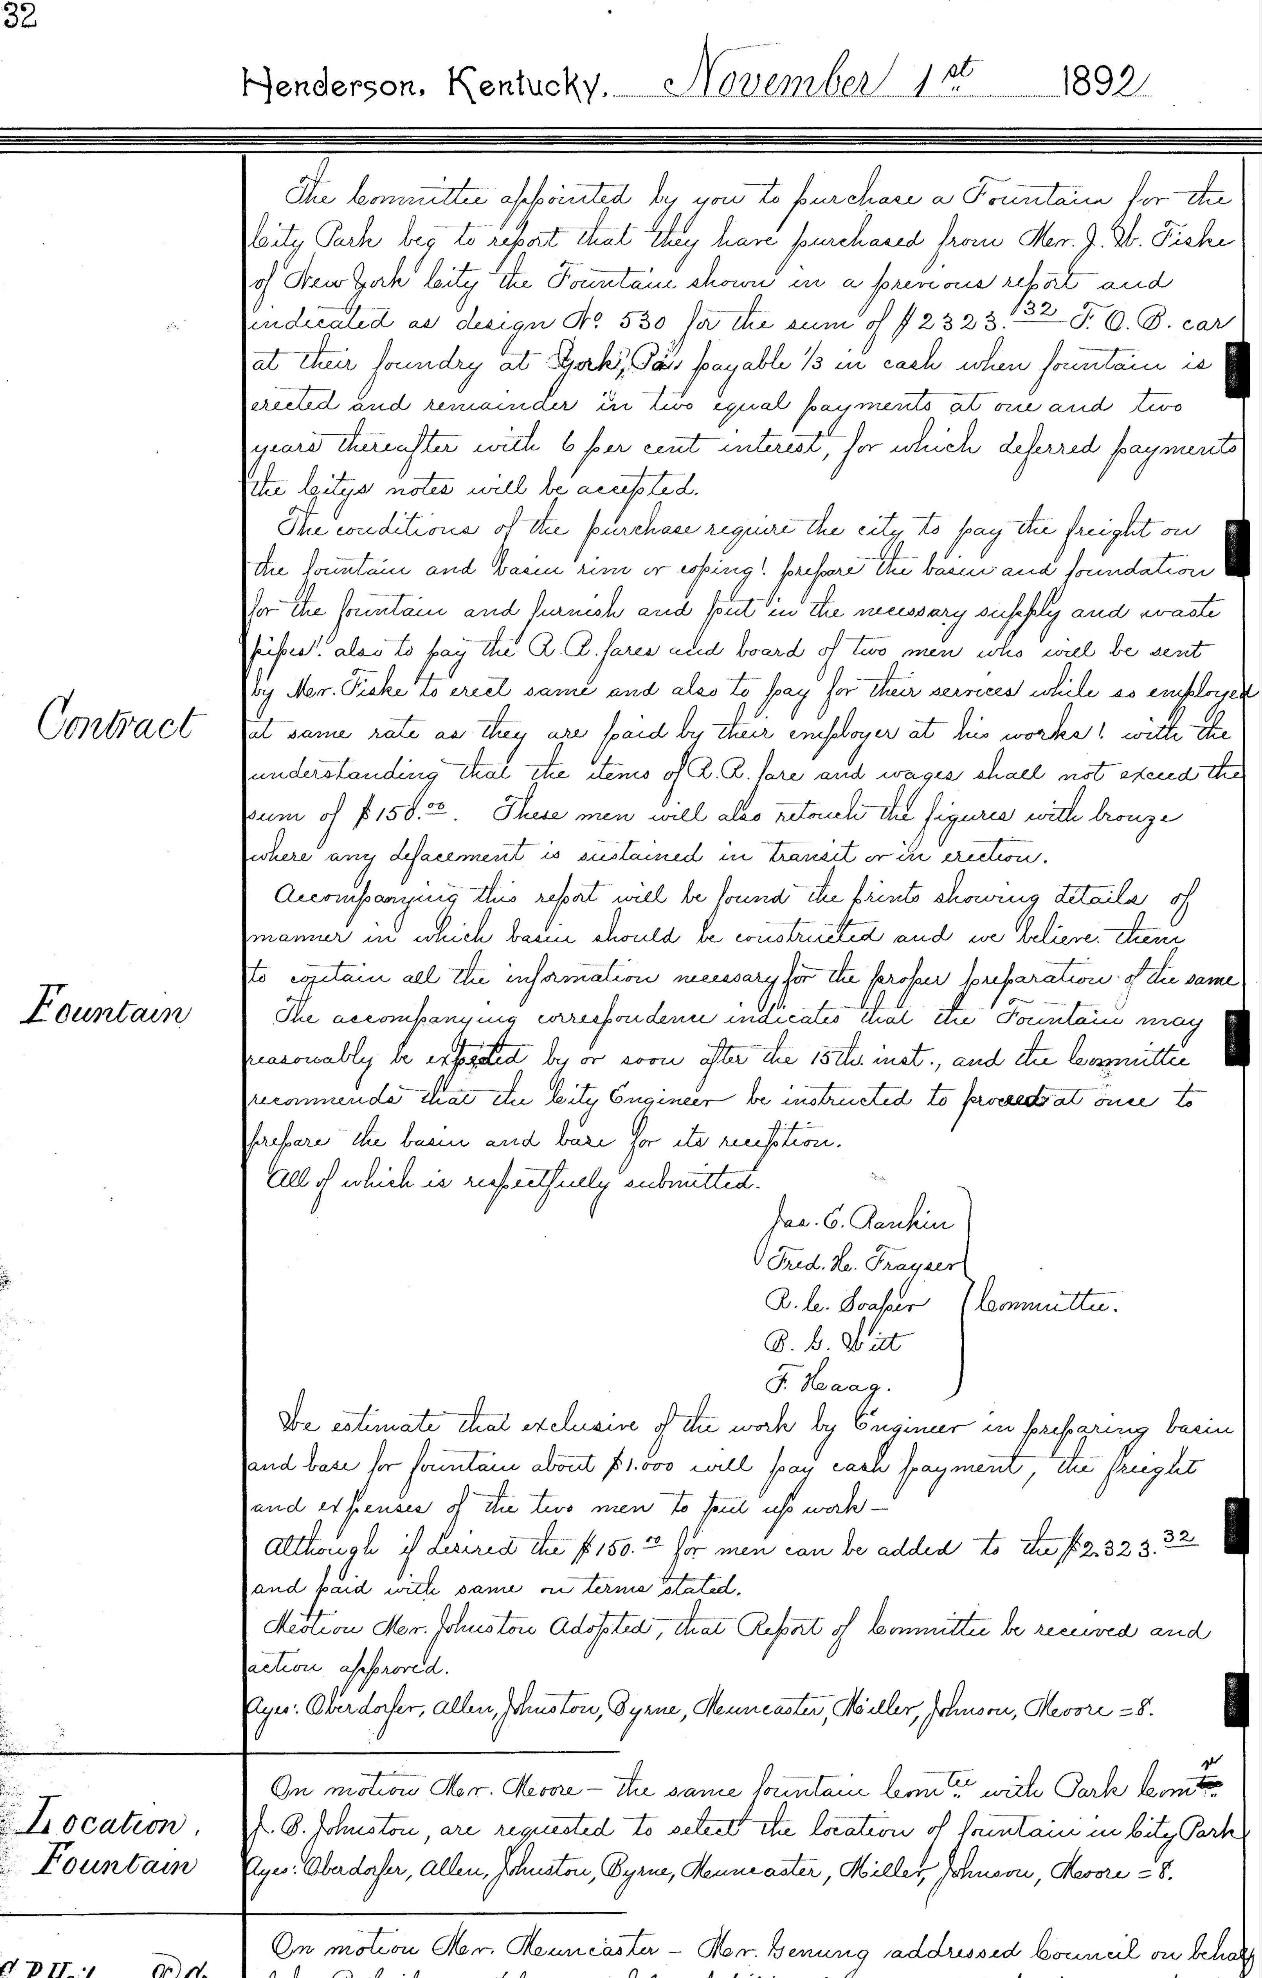 32
Henderson, Kentucky, November 1st 1892
The Committee appointed by you to purchase a Fountain for the
City Park beg to report that they have purchased from Mr. J. W. Fiske
of New York City the Fountain shown in a previous report and
indicated as design No. 530 for the sum of $2323.32 F. O. B. car
at their foundry at York, Pa, payable 1/3 in cash when fountain is
erected and remainder in two equal payments at one and two
years thereafter with 6 per cent interest, for which deferred payments
the Citys notes will be accepted.
The conditions of the purchase require the city to pay the freight on
the fountain and basin rim or coping! prepare the basin and foundation
for the fountain and furnish and put in the necessary supply and waste
pipes! also to pay the R. R. fares and board of two men who will be sent
by Mr. Fiske to erect same and also to pay for their services while so employed
Contract
at same rate as they are paid by their employer at his works! with the
understanding that the items of R. R. fare and wages shall not exceed the
sum of $150.00. These men will also retouch the figures with bronze
where any defacement is sustained in transit or in erection.
Accompanying this report will be found the prints showing details of
manner in which basin should be constructed and we believe them
to contain all the information necessary for the proper preparation of the same
Fountain
The accompanying correspondence indicates that the Fountain may
reasonably be expected by or soon after the 15th. inst., and the Committee
recommends that the City Engineer be instructed to proceed at once to
prepare the basin and base for its reception.
All of which is respectfully submitted.
Jas. E. Rankin
Fred. H. Frayser
R. C. Soaper } Committee.
B. G. Witt
F. Haag.
We estimate that exclusive of the work by Engineer in preparing basin
and base for fountain about $1.000 will pay cash payment, the freight
and expenses of the two men to put up work—
Although if desired the $150.00 for men can be added to the $2.323.32
and paid with same on terms stated.
Motion Mr. Johnston Adopted, that Report of Committee be received and
action approved.
Ayes: Oberdorfer, Allen, Johnston, Byrne, Muncaster, Miller, Johnson, Moore = 8.
On motion Mr. Moore — the same fountain Comtee with Park Comtr
Location.
J. B. Johnston, are requested to select the location of fountain in City Park
Fountain
Ayes: Oberdorfer, Allen, Johnston, Byrne, Muncaster, Miller, Johnson, Moore = 8.
On motion Mr. Muncaster — Mr. Genung addressed Council on behalf